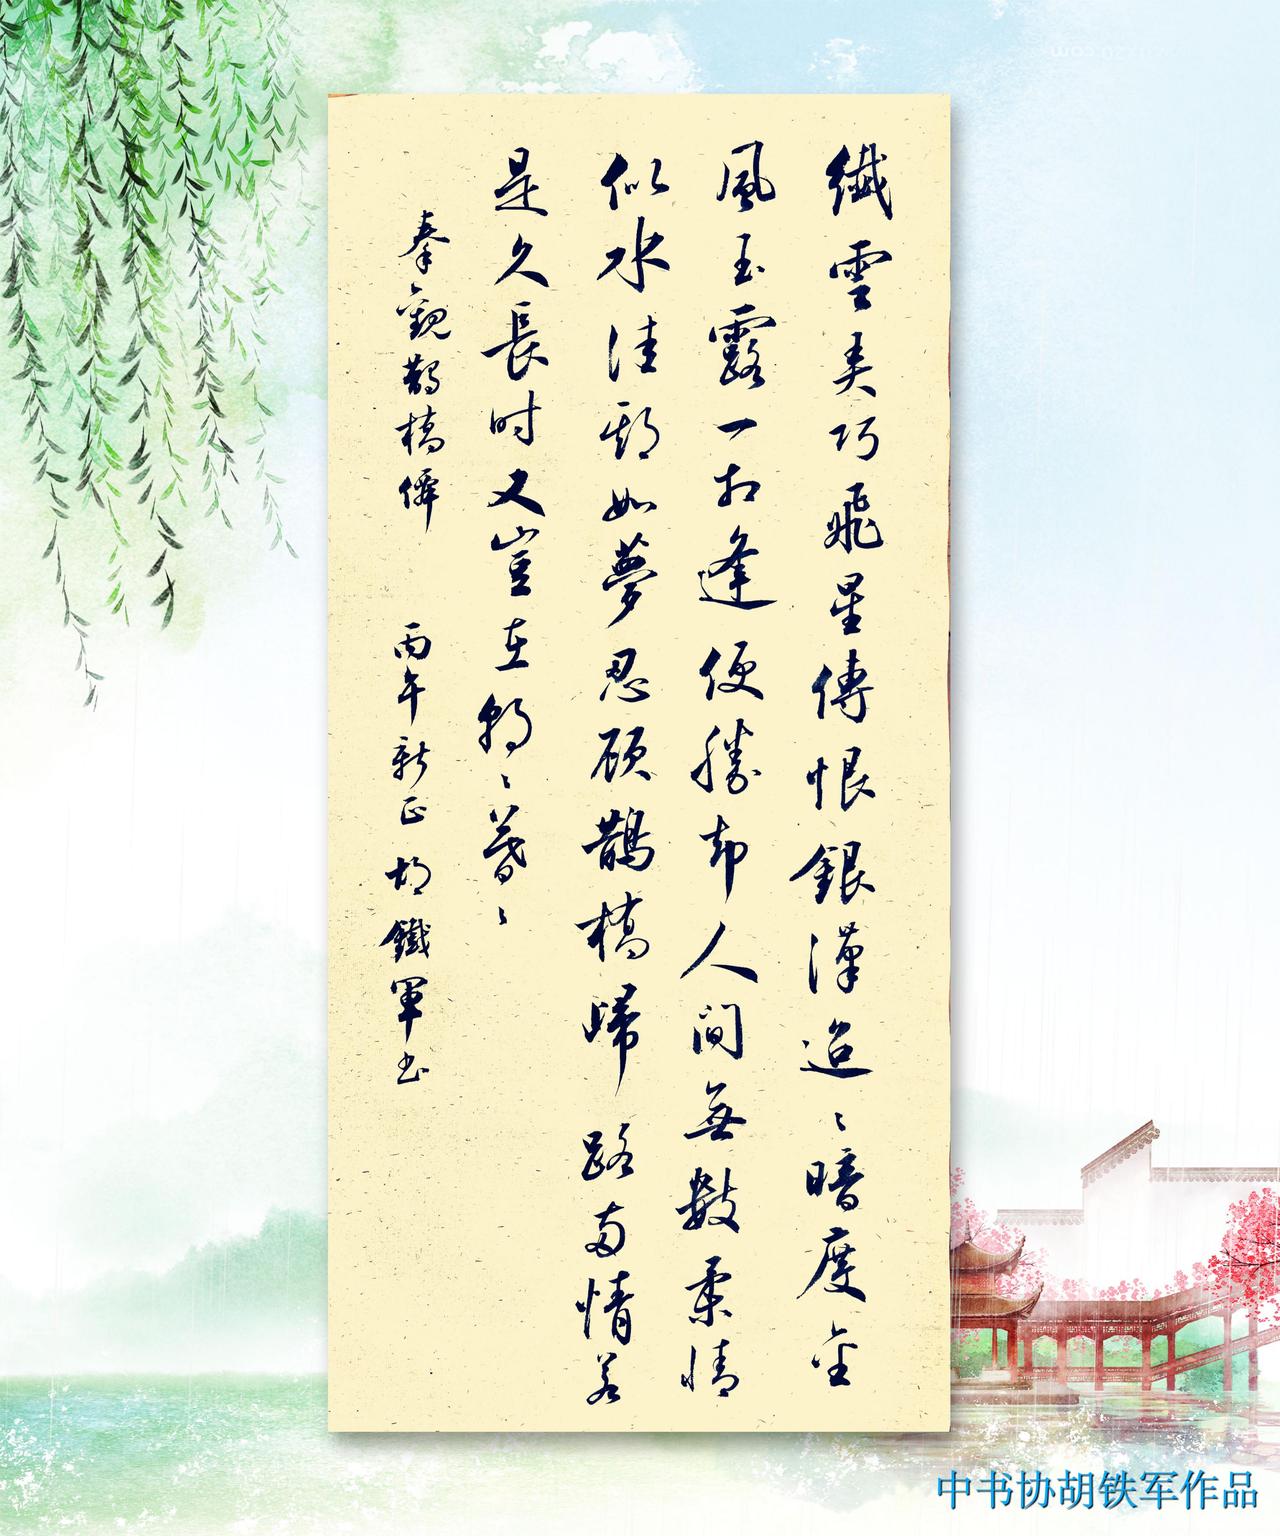 纖雲弄巧飛星傳恨銀漢迢〻暗度金
風玉露一相逢便勝却人間無數柔情
似水佳期如夢忍顧鵲橋歸路兩情若
是久長时又豈在朝〻暮〻
秦觀鵲橋僊 丙午新正 胡鐵軍书
中书协胡铁军作品